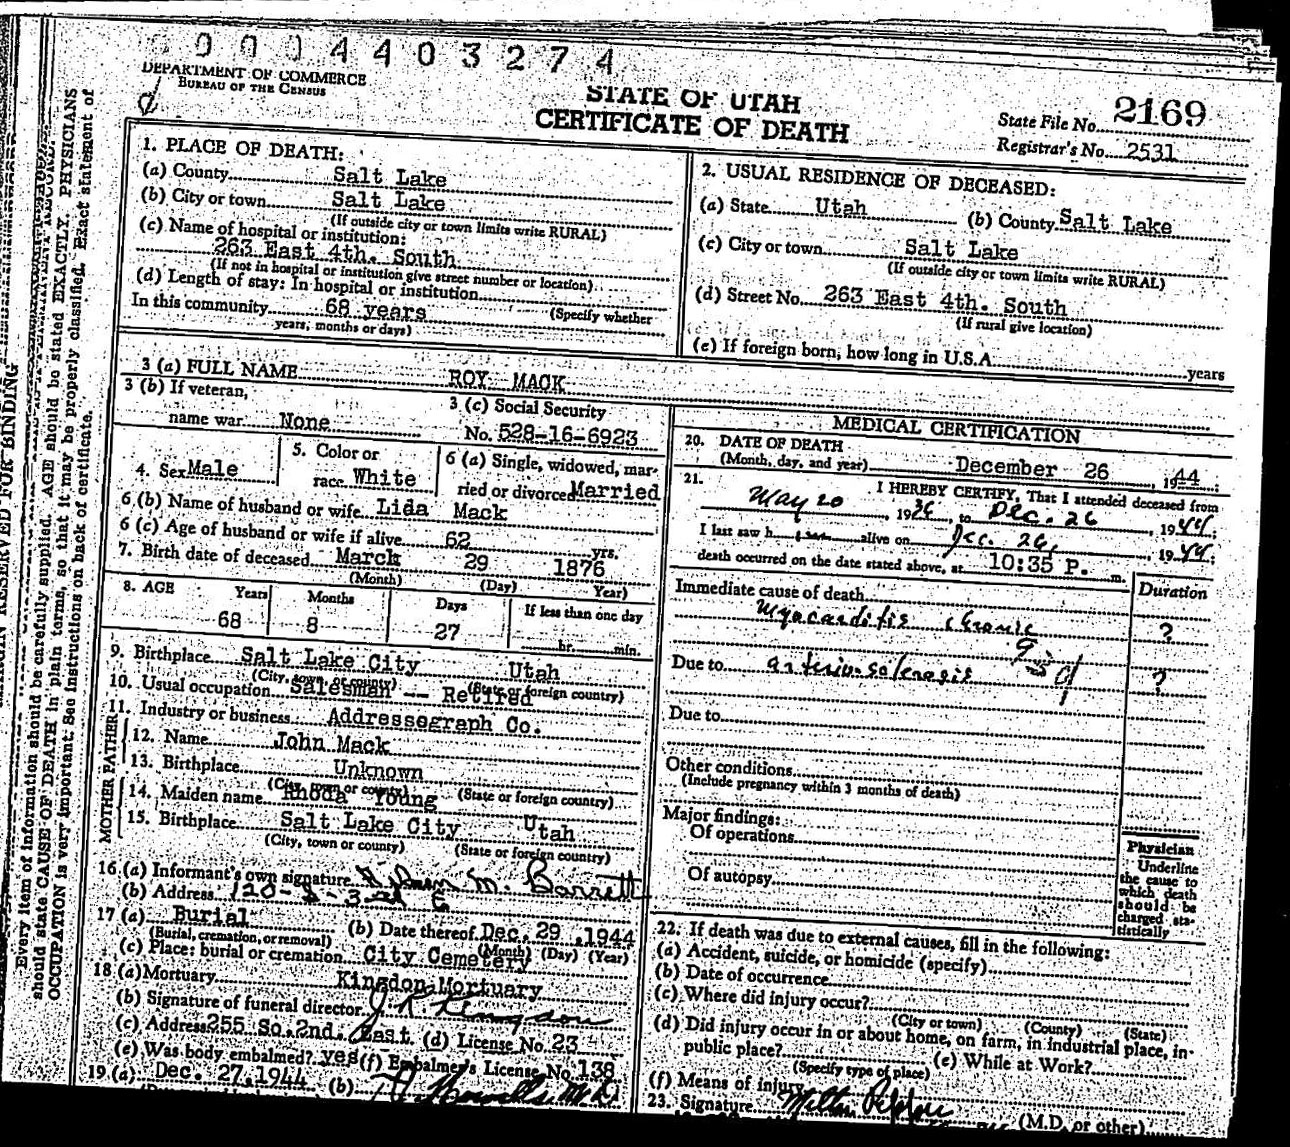 0004403274
DEPARTMENT OF COMMERCE
BUREAU OF THE CENSUS
STATE OF UTAH
CERTIFICATE OF DEATH
State File No. 2169
Registrar's No. 2531
1. PLACE OF DEATH:
(a) County Salt Lake
(b) City or town Salt Lake
(If outside city or town limits write RURAL)
(c) Name of hospital or institution:
263 East 4th. South
(If not in hospital or institution give street number or location)
(d) Length of stay: In hospital or institution
In this community 68 years (Specify whether
years, months or days)
2. USUAL RESIDENCE OF DECEASED:
(a) State Utah (b) County Salt Lake
(c) City or town Salt Lake
(If outside city or town limits write RURAL)
(d) Street No. 263 East 4th. South
(If rural give location)
(e) If foreign born, how long in U.S.A. years
3 (a) FULL NAME ROY MACK
3 (b) If veteran,
name war None
3 (c) Social Security
No. 528-16-6923
4. Sex Male
5. Color or
race White
6 (a) Single, widowed, mar-
ried or divorced Married
6 (b) Name of husband or wife Lida Mack
6 (c) Age of husband or wife if alive 62 yrs.
7. Birth date of deceased March 29 1876
(Month) (Day) Year)
8. AGE Years Months Days If less than one day
68 8 27 hr. min.
9. Birthplace Salt Lake City Utah
(City, town, or county) (State or foreign country)
10. Usual occupation Salesman -- Retired
11. Industry or business Addressograph Co.
FATHER
12. Name John Mack
13. Birthplace Unknown
(City, town or county) (State or foreign country)
MOTHER
14. Maiden name Rhoda Young
15. Birthplace Salt Lake City Utah
(City, town or county) (State or foreign country)
16 (a) Informant's own signature M. Barrett
(b) Address 120-
17 (a) Burial (b) Date thereof Dec. 29, 1944
(Burial, cremation, or removal) (Month) (Day) (Year)
(c) Place: burial or cremation City Cemetery
18 (a) Mortuary Kingdon Mortuary
(b) Signature of funeral director J. R. Kingdon
(c) Address 255 So. 2nd. East. (d) License No. 23
(e) Was body embalmed? yes (f) Embalmer's License No. 138
19 (a) Dec. 27, 1944 (b) M.D.
MEDICAL CERTIFICATION
20. DATE OF DEATH
(Month, day, and year) December 26, 1944
21. I HEREBY CERTIFY, That I attended deceased from
May 20, 1936 to Dec. 26 1944;
I last saw him alive on Dec. 26, 1944;
death occurred on the date stated above, at 10:35 P. m.
Immediate cause of death Duration
Myocarditis chronic ?
Due to ?
Due to
Other conditions
(Include pregnancy within 3 months of death)
Major findings:
Of operations
Of autopsy
Physician
Underline
the cause to
which death
should be
charged sta-
tistically
22. If death was due to external causes, fill in the following:
(a) Accident, suicide, or homicide (specify)
(b) Date of occurrence
(c) Where did injury occur?
(City or town) (County) (State)
(d) Did injury occur in or about home, on farm, in industrial place, in-
public place? (e) While at Work?
(Specify type of place)
(f) Means of injury
23. Signature (M.D. or other)
RESERVED FOR BINDING
Every item of information should be carefully supplied. AGE should be stated EXACTLY. PHYSICIANS
should state CAUSE OF DEATH in plain terms, so that it may be properly classified. Exact statement of
OCCUPATION is very important. See instructions on back of certificate.